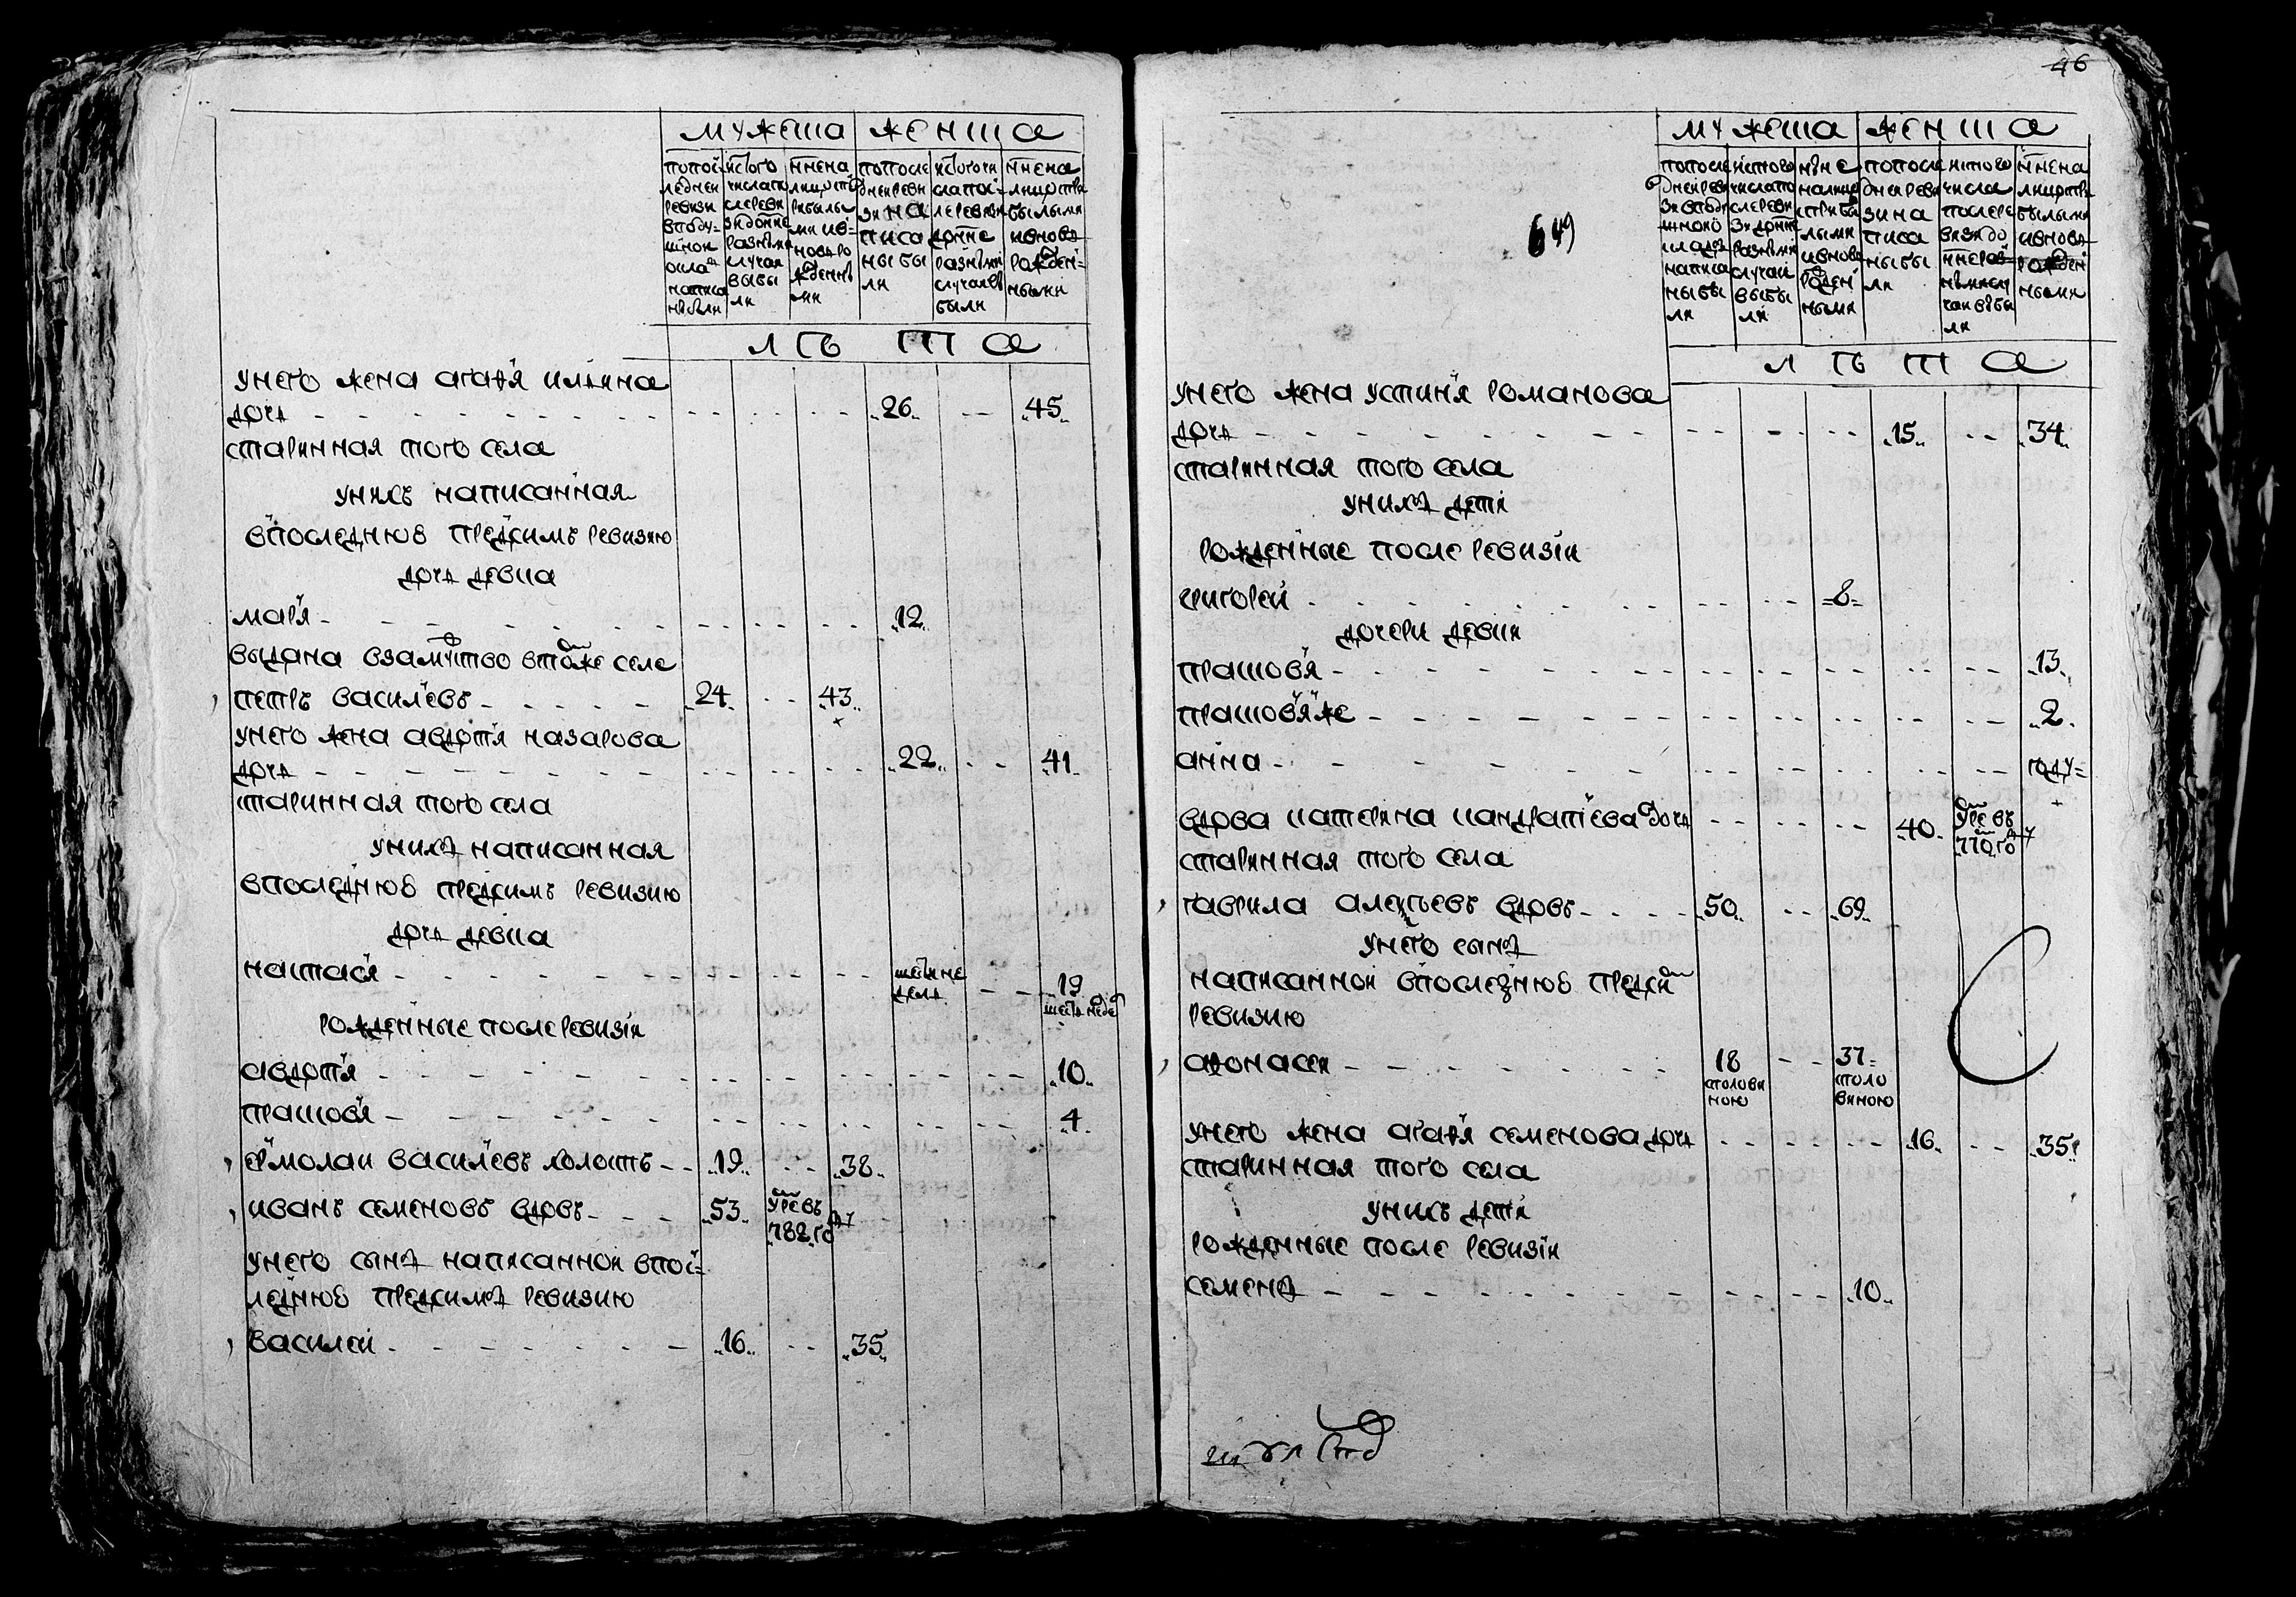 мужеска женска
попос
ледней
ревизи
в поду=
шной
оклад
написа
ны были
ис того
числа по
сле реви
зи до ныне
разными
случаи
выбы
ли
ныне на
лицо с при
былы
ми и в=
новь ро
жденны
ми
по после
дней реви
зи на
писа
ны бы
ли
ис того чи
сла пос=
ле ревизи
до ныне
разными
случаи вы
были
ныне на
лицо с при
былыми
и вновь
рожден=
ными
лѣта
у него жена агафя илина
дочь 26 45
старинная того села
у нихъ написанная
в последнюю предсимъ ревизию
дочь девка
маря 12
выдана взамуство в том же селе
петръ василевъ 24 43
у него жена авдотя назарова
дочь 22 41
старинная того села
у нихъ написанная
в последнюю предсимъ ревизию
дочь девка
настася шесть не 19
дель шесть недел
рожденные после ревизiи
авдотя 10
прасковя 4
ермолаи василевъ холостъ 19 38
иванъ семеновъ вдовъ 53 умре въ
782 году
у него сынъ написанной в пос=
леднюю предсимъ ревизию
василеи 16 35
46
649
мужеска женска
по после
дней реви
зи в поду
шной
оклад
написа
ны бы
ли
ис того
числа по
сле реви
зи до ныне
разными
случаи
выбы
ли
ныне
на лицо
с прибы
лыми
и вновь
рожден
ными
по после
дней реви
зи на
писа
ны бы
ли
ис того
числа
после ре
визи до
ныне раз
ными слу
чаи выбы
ли
ныне на
лицо с при
былыми
и вновь
рожден
ными
лѣта
у него жена устиня романова
дочь 15 34
старинная того села
у нихъ дети
рожденные после ревизiи
григореи 8
дочери девки
прасковя 13
прасковя же 2
анна году
вдова катерина кандратiева дочь 40 умре въ
770 году
старинная того села
гаврила алексѣевъ вдовъ 50 69
у него сынъ
написанной в последнюю предсим
ревизию
афонасеи 18 37
с полови с поло
ною виною
у него жена агафя семенова дочь 16 35
старинная того села
у нихъ дети
рожденные после ревизiи
семенъ 10